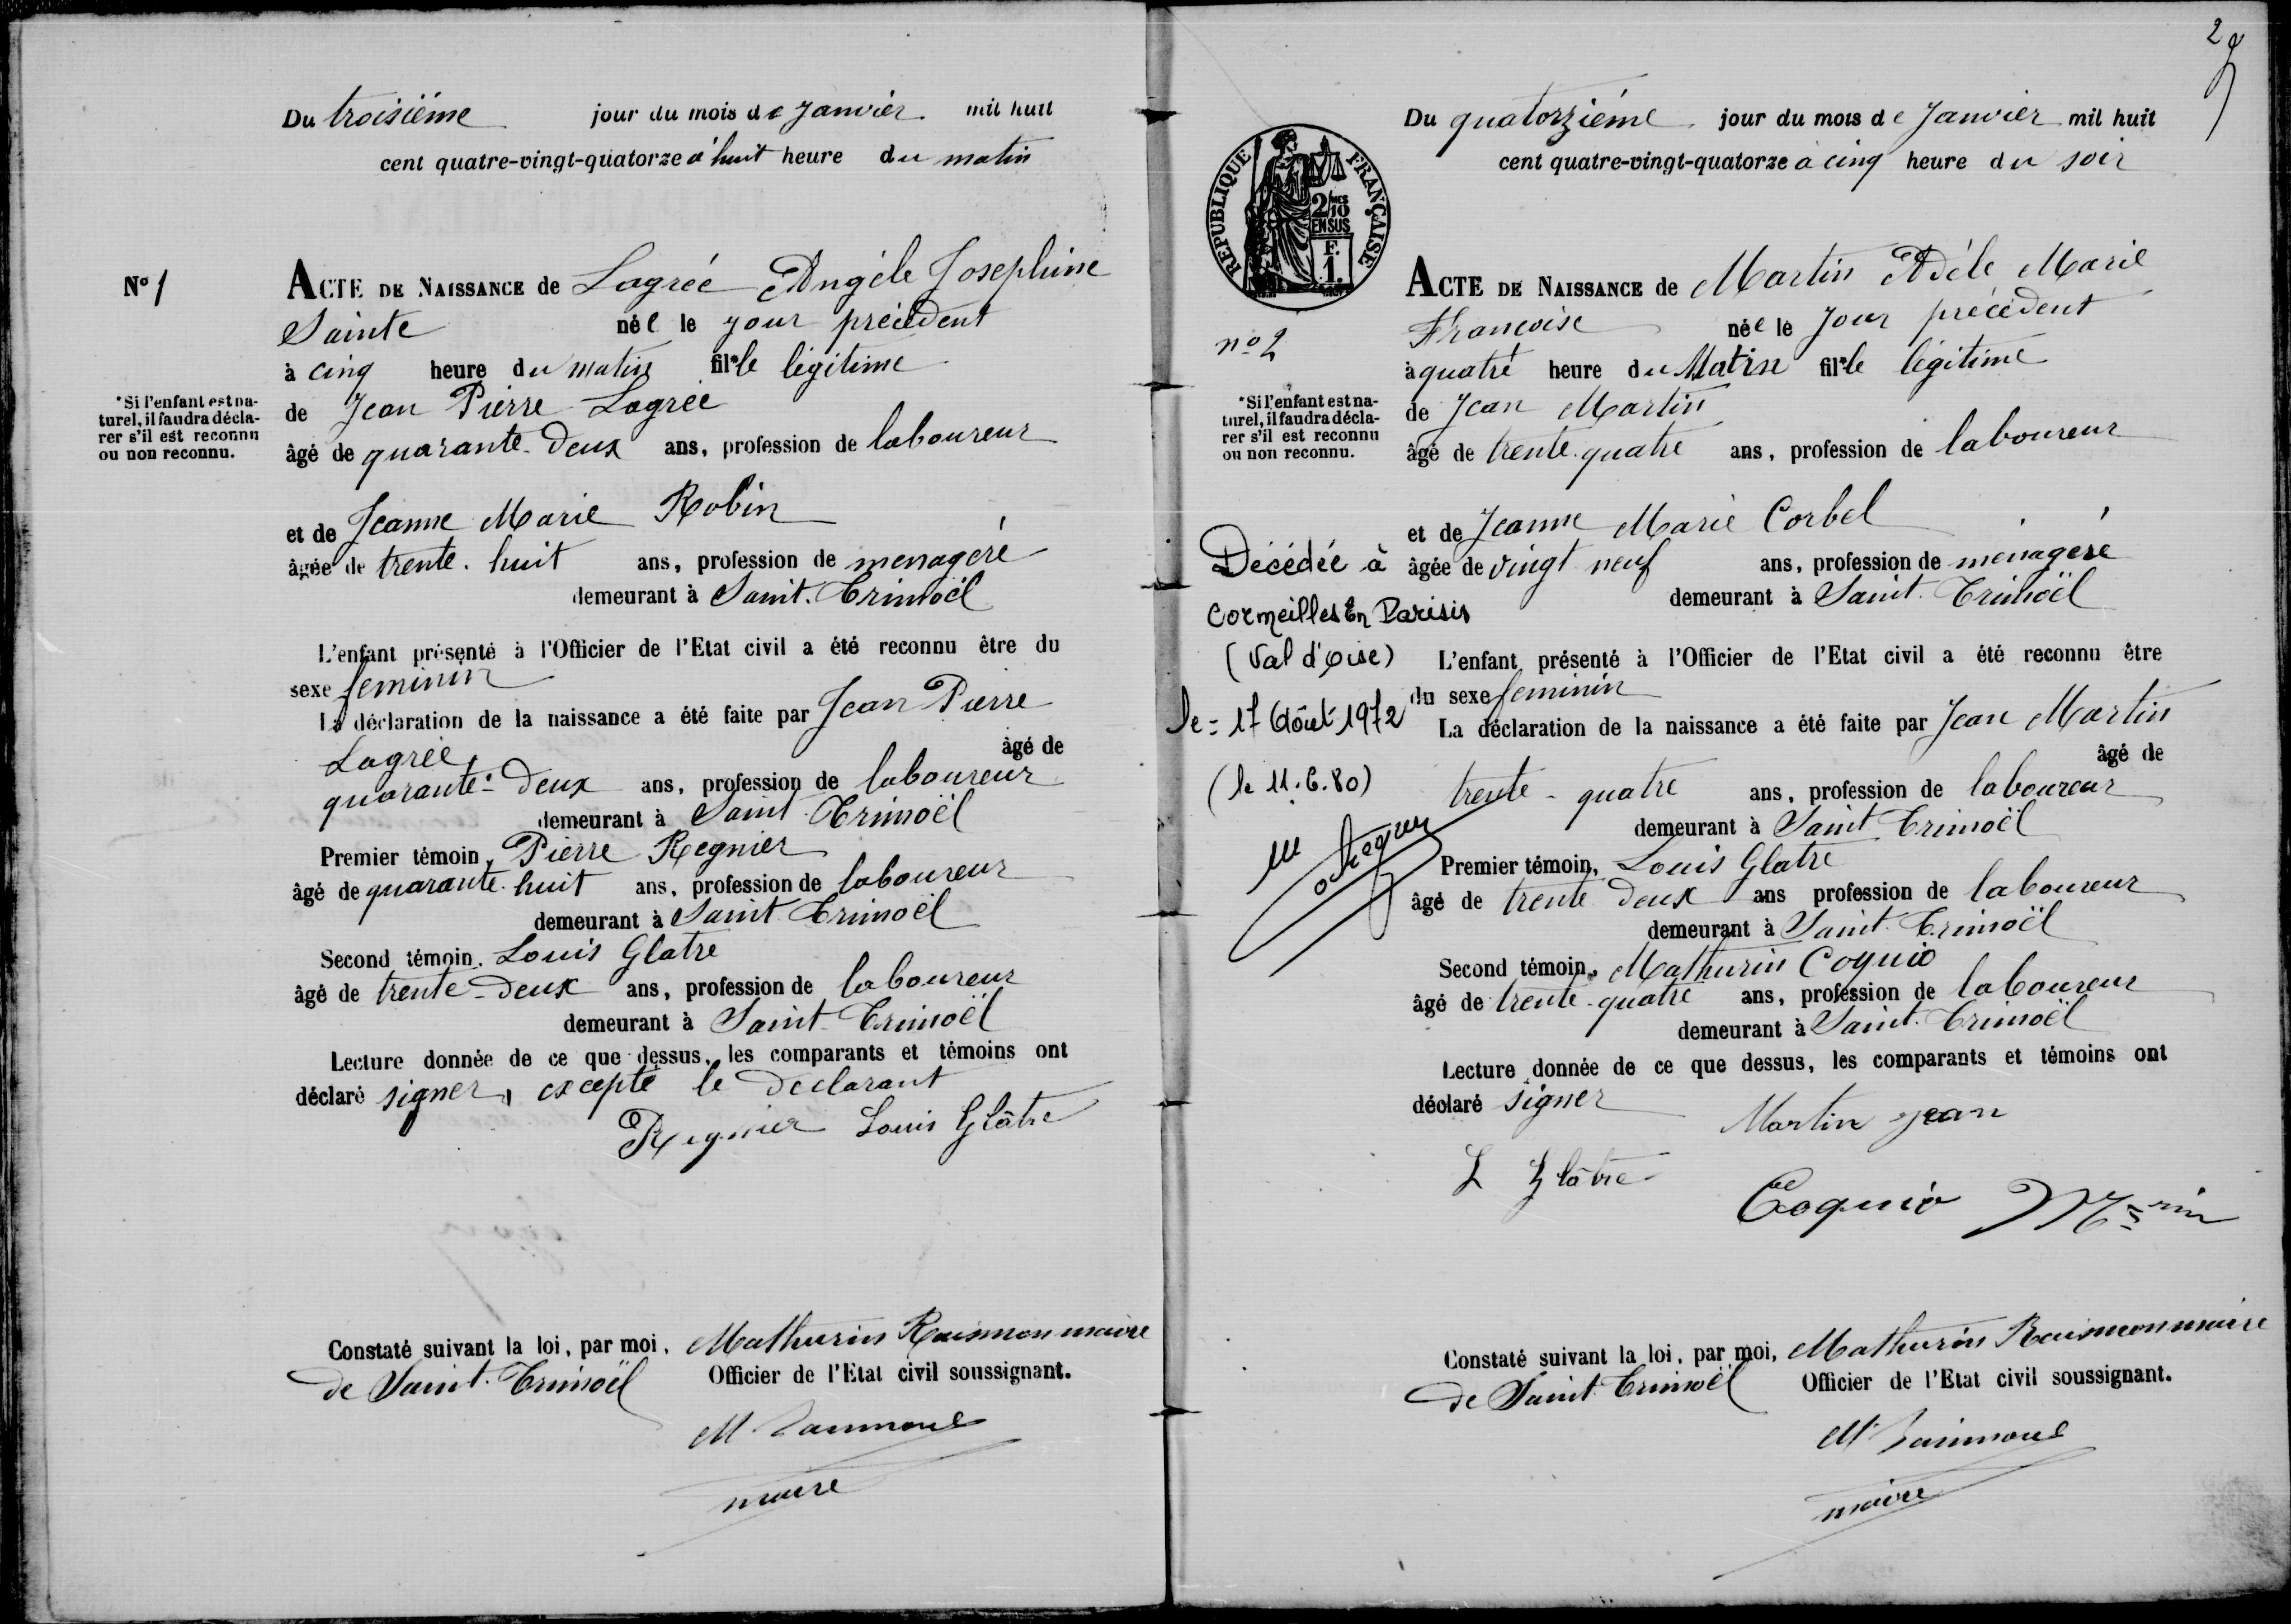 Du troisième jour du mois de Janvier mil huit
cent quatre-vingt-quatorze à huit heure du matin
N° 1
ACTE DE NAISSANCE de Lagrée Angèle Josephine
Sainte née le jour précédent
à cinq heure du matin fil*le légitime
*Si l'enfant est na-
turel, il faudra décla-
rer s'il est reconnu
ou non reconnu.
de Jean Pierre Lagrée
âgé de quarante-deux ans, profession de laboureur
et de Jeanne Marie Robin
âgée de trente-huit ans, profession de menagère
demeurant à Saint-Trimoël
L'enfant présenté à l'Officier de l'Etat civil a été reconnu être du
sexe feminin
La déclaration de la naissance a été faite par Jean Pierre
Lagrée, âgé de
quarante-deux ans, profession de laboureur
demeurant à Saint-Trimoël
Premier témoin, Pierre Regnier
âgé de quarante-huit ans, profession de laboureur
demeurant à Saint-Trimoël
Second témoin, Louis Glatre
âgé de trente-deux ans, profession de laboureur
demeurant à Saint-Trimoël
Lecture donnée de ce que dessus, les comparants et témoins ont
déclaré signer, excepté le declarant
Regnier Louis Glâtre
Constaté suivant la loi, par moi, Mathurin maire
de Saint-Trimoël Officier de l'Etat civil soussignant.
M
maire
2
Du quatorzième jour du mois de Janvier mil huit
cent quatre-vingt-quatorze à cinq heure du soir
REPUBLIQUE FRANÇAISE
2/10 MES
EN SUS
F.
1.
n° 2
ACTE DE NAISSANCE de Martin Adèle Marie
Francoise née le Jour précédent
à quatre heure du Matin fil*le légitime
*Si l'enfant est na-
turel, il faudra décla-
rer s'il est reconnu
ou non reconnu.
de Jean Martin
âgé de trente-quatre ans, profession de laboureur
et de Jeanne Marie Corbel
âgée de vingt neuf ans, profession de ménagère
demeurant à Saint-Trimoël
Décédée à
Cormeilles En Parisis
(Val d'Oise)
le = 17 Août 1972
(le 11.6.80)
L'enfant présenté à l'Officier de l'Etat civil a été reconnu être
du sexe feminin
La déclaration de la naissance a été faite par Jean Martin
âgé de
trente-quatre ans, profession de laboureur
demeurant à Saint-Trimoël
Premier témoin, Louis Glatre
âgé de trente deux ans profession de laboureur
demeurant à Saint-Trimoël
Second témoin, Mathurin Coquio
âgé de trente-quatre ans, profession de laboureur
demeurant à Saint-Trimoël
Lecture donnée de ce que dessus, les comparants et témoins ont
déclaré signer
Martin jean
L Glâtre
Coquio
Constaté suivant la loi, par moi, Mathurin maire
de Saint-Trimoël Officier de l'Etat civil soussignant.
M
maire